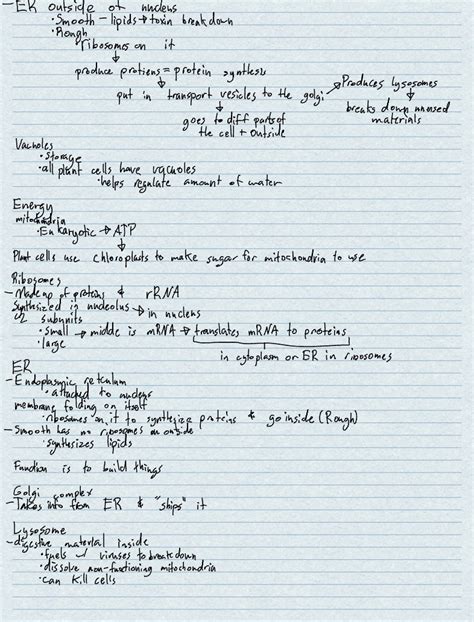 - ER outside of nucleus
• Smooth - lipids → toxin breakdown
• Rough
ribosomes on it
↓
produce protiens = protein synthesis
↓
put in transport vesicles to the golgi → Produces lysosomes
↓ ↓
goes to diff parts of the cell + outside
breaks down unused materials
Vacuoles
• Storage
• all plant cells have vacuoles
• helps regulate amount of water
Energy
mitochondria
• Eukaryotic → ATP
↓
Plant cells use chloroplasts to make sugar for mitochondria to use
Ribosomes
- Made up of proteins & rRNA
Synthesized in nucleolus → in nucleus
2 subunits
• small → middle is mRNA → translates mRNA to proteins
• large
in cytoplasm or ER in ribosomes
ER
- Endoplasmic reticulum
• attached to nucleus
membrane folding on itself
• ribosomes on it to synthesize proteins & go inside (Rough)
- Smooth has no ribosomes on outside
• synthesizes lipids
Function is to build things
Golgi complex
- Takes info from ER & "ships" it
Lysosome
- digestive material inside
• fuels viruses to breakdown
• dissolve non-functioning mitochondria
• can kill cells